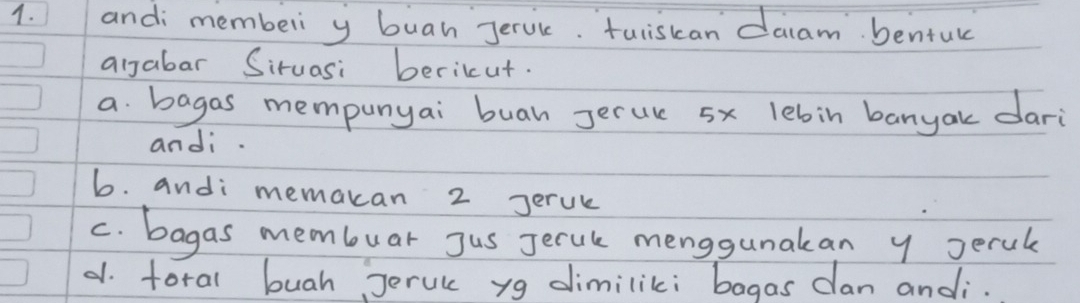 1. andi membeli y buah jeruk. tuliskan dalam bentuk
aljabar Situasi berikut.
a. bagas mempunyai buah jeruk 5x lebih banyak dari
andi.
b. andi memakan 2 jeruk
c. bagas membuat jus jeruk menggunakan y jeruk
d. total buah jeruk yg dimiliki bagas dan andi.